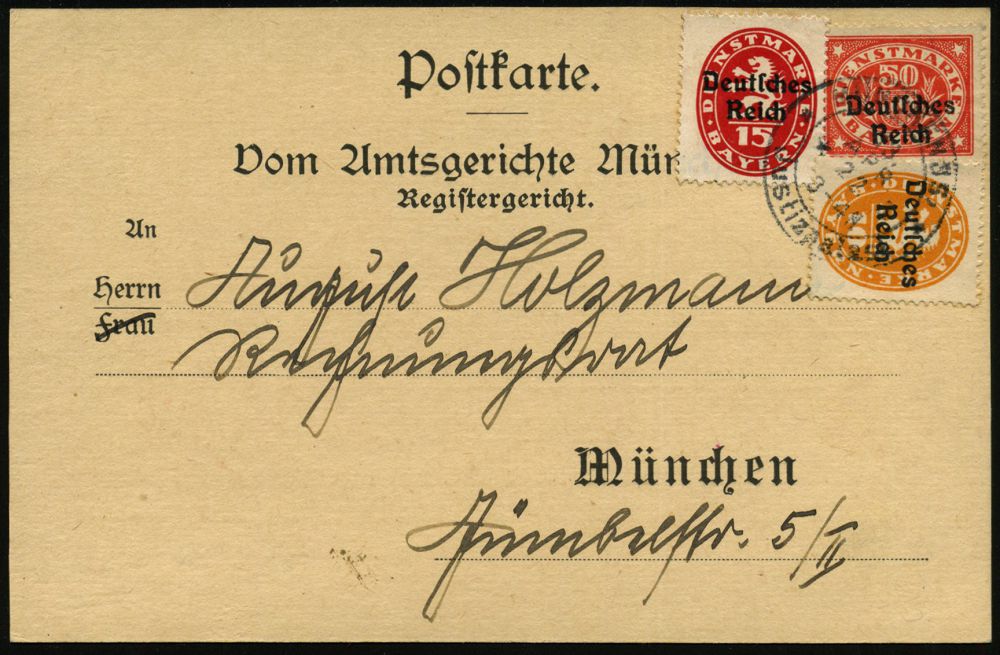 Postkarte.
Vom Amtsgerichte Mün
Registergericht.
An
Herrn August Holzmann
Frau
Rechnungsrat
München
5/II
DIENSTMARKE
Deutsches
Reich
15
BAYERN
DIENSTMARKE
50
Deutsches
Reich
Deutsches
Reich